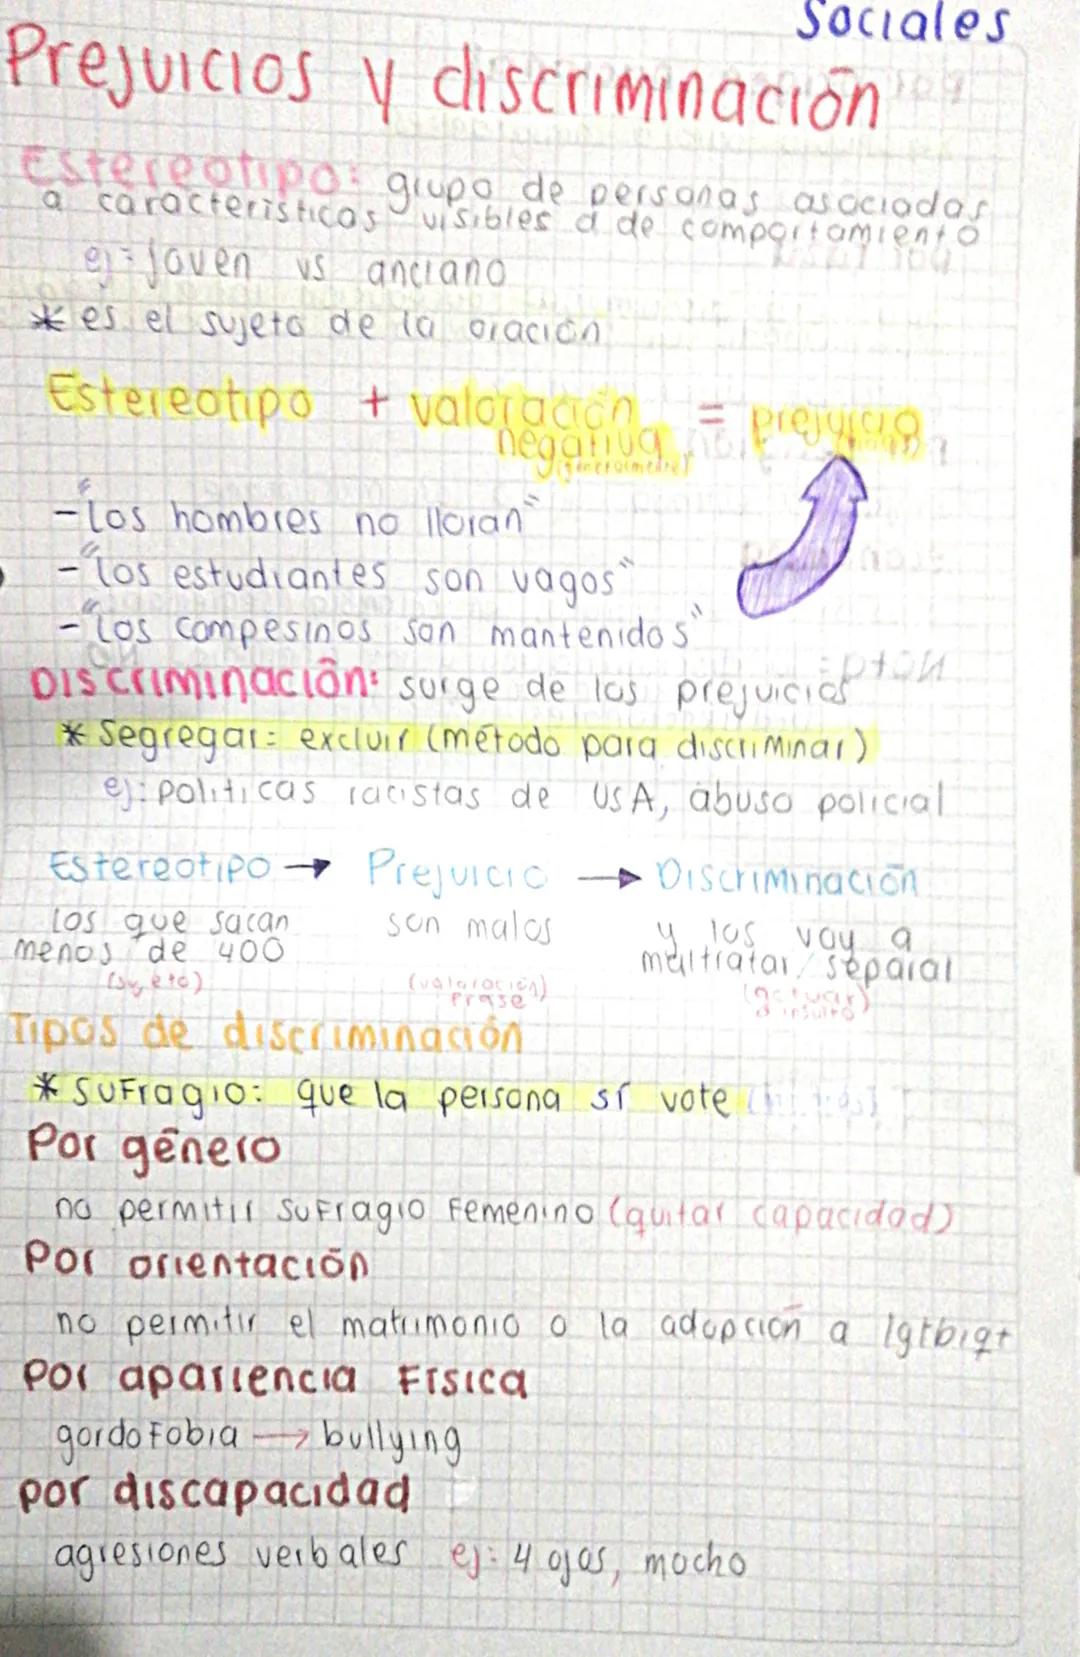 Sociales
Prejuicios y discriminación
Estereotipo: grupo de personas asociadas
a características visibles o de comportamiento
ej: joven vs anciano
* es el sujeto de la oración
Estereotipo + valoración = prejuicio
negativa
(generalmente)
-"los hombres no lloran"
-"los estudiantes son vagos"
-"los campesinos son mantenidos"
Discriminación: surge de los prejuicios
* Segregar: excluir (método para discriminar)
ej: políticas racistas de USA, abuso policial
Estereotipo → Prejuicio → Discriminación
los que sacan son malos y los voy a
menos de 400 maltratar/separar
(sujeto) (valoración) (actuar)
frase o insulto
Tipos de discriminación
* sufragio: que la persona sí vote
Por género
no permitir sufragio femenino (quitar capacidad)
Por orientación
no permitir el matrimonio o la adopción a lgtbiq+
Por apariencia física
gordofobia → bullying
por discapacidad
agresiones verbales ej: 4 ojos, mocho